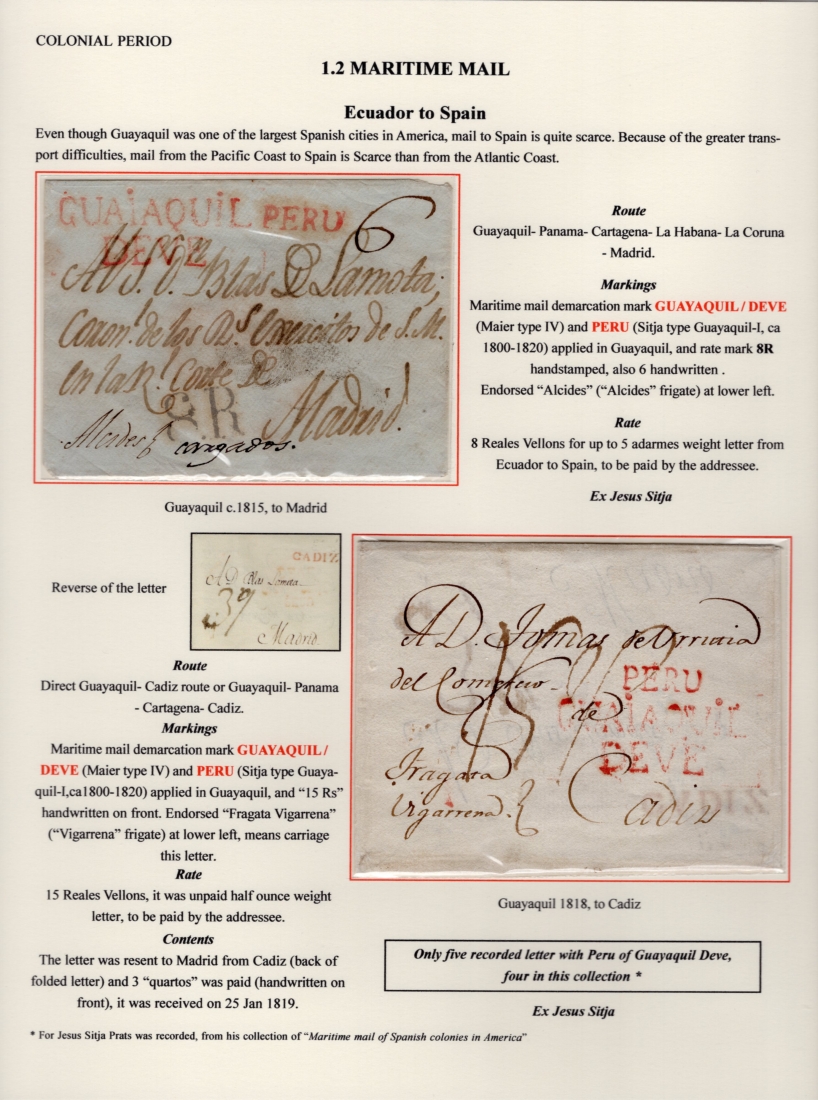 COLONIAL PERIOD
1.2 MARITIME MAIL
Ecuador to Spain
Even though Guayaquil was one of the largest Spanish cities in America, mail to Spain is quite scarce. Because of the greater trans-
port difficulties, mail from the Pacific Coast to Spain is Scarce than from the Atlantic Coast.
GUAIAQUIL PERU
DEVE
6
A S. D. Blas Lamota,
Coron. de los Rs. Exercitos de S. M.
en la R. Corte de
8R Madrid
Alcides cargados.
Guayaquil c.1815, to Madrid
Route
Guayaquil- Panama- Cartagena- La Habana- La Coruna
- Madrid.
Markings
Maritime mail demarcation mark GUAYAQUIL / DEVE
(Maier type IV) and PERU (Sitja type Guayaquil-I, ca
1800-1820) applied in Guayaquil, and rate mark 8R
handstamped, also 6 handwritten .
Endorsed “Alcides” (“Alcides” frigate) at lower left.
Rate
8 Reales Vellons for up to 5 adarmes weight letter from
Ecuador to Spain, to be paid by the addressee.
Ex Jesus Sitja
Reverse of the letter
CADIZ
A D. Blas Lamota
Madrid
Route
Direct Guayaquil- Cadiz route or Guayaquil- Panama
- Cartagena- Cadiz.
Markings
Maritime mail demarcation mark GUAYAQUIL /
DEVE (Maier type IV) and PERU (Sitja type Guaya-
quil-I,ca1800-1820) applied in Guayaquil, and “15 Rs”
handwritten on front. Endorsed “Fragata Vigarrena”
(“Vigarrena” frigate) at lower left, means carriage
this letter.
Rate
15 Reales Vellons, it was unpaid half ounce weight
letter, to be paid by the addressee.
Contents
The letter was resent to Madrid from Cadiz (back of
folded letter) and 3 “quartos” was paid (handwritten on
front), it was received on 25 Jan 1819.
A D. Tomas de Urrutia
del Comercio de
PERU
GUAIAQUIL
DEVE
Fragata
Vigarrena
Cadiz
CADIZ
Guayaquil 1818, to Cadiz
Only five recorded letter with Peru of Guayaquil Deve,
four in this collection *
Ex Jesus Sitja
* For Jesus Sitja Prats was recorded, from his collection of “Maritime mail of Spanish colonies in America”